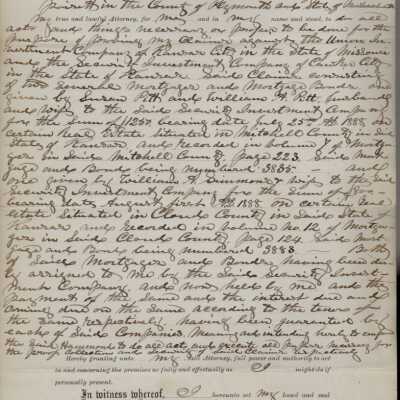 in the County of Plymouth and State of
my true and lawful Attorney, for me and in my name and stead, to do all
acts and things necessary or proper to be done in the
of proving my Claims against the Union In-
vestment Company of Kansas City in the State of Missouri
and the Security Investment Company of Cawker City
in the State of Kansas Said Claims consisting
of two several Mortgages and Mortgage Bonds one
given by Susan Pitt and William H. Pitt husband
and wife to the said Security Investment Company
for the Sum of $1250. bearing date July 25th 1888, on
certain Real Estate situated in Mitchell County in said
State of Kansas and recorded in Volume of Mort-
gages in said Mitchell County, page 223. Said Mort-
gage and Bond being numbered 3865 — and
one given by William A. Simmons & wife to the said
Security Investment Company for the Sum of $800
bearing date August first A.D. 1888. on certain real
estate situated in Cloud County in said State of
Kansas and recorded in Volume No 12 of Mortga-
ges in said Cloud County page 124. Said Mort-
gage and Bond being numbered 3883 — both
of said Mortgages and Bonds having been du-
ly assigned to me by the said Security Invest-
ment Company and now held by me and the
payment of the same and the interest due and
coming due on the same according to the tenor of
the same respectively having been guaranteed by
each of said Companies, Meaning and intending hereby to empower
the said Hammond to do all acts, and execute all papers necessary for
the proof collection and security of said claims respectively
hereby granting unto my said Attorney, full power and authority to act
in and concerning the premises as fully and effectually as I might do if
personally present.
In witness whereof, I hereunto set my hand and seal